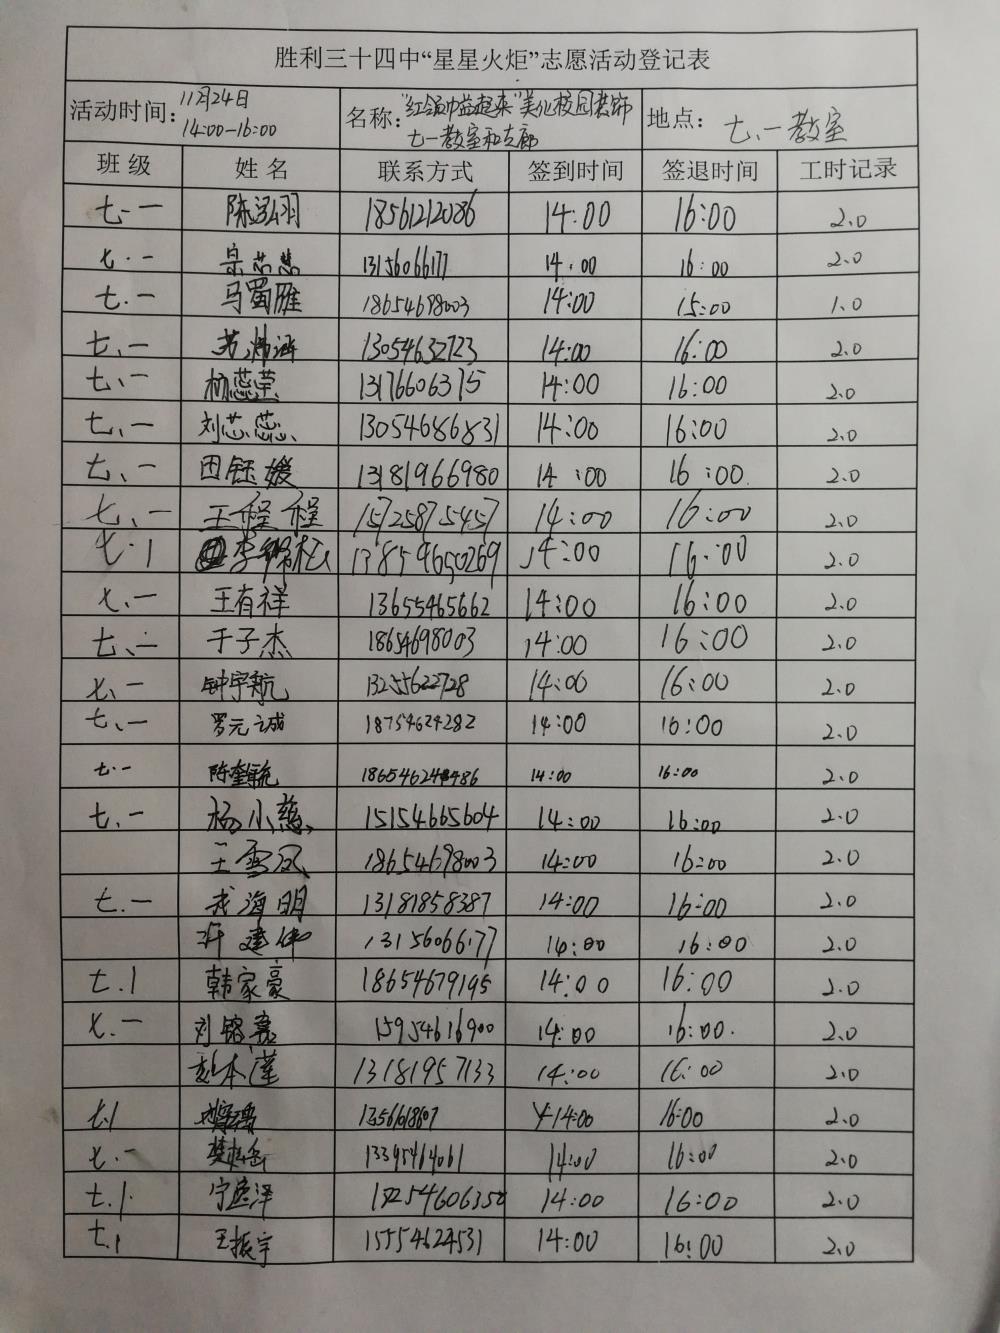 胜利三十四中“星星火炬”志愿活动登记表
活动时间: 11月24日 14:00-16:00 名称: “红领巾益起来”美化校园装饰 七一教室和走廊 地点: 七、一教室
班级 姓名 联系方式 签到时间 签退时间 工时记录
七.一 陈泓羽 18561212086 14:00 16:00 2.0
七.一 13156066177 14:00 16:00 2.0
七.一 马蜀雁 18654698003 14:00 15:00 1.0
七、一 13054632723 14:00 16:00 2.0
七、一 杨蕊荣 13176606375 14:00 16:00 2.0
七、一 刘芯蕊 13054686831 14:00 16:00 2.0
七、一 田钰媛 13181966980 14:00 16:00 2.0
七、一 王程程 15725875457 14:00 16:00 2.0
七.1 13854650269 14:00 16:00 2.0
七、一 王有祥 13655465662 14:00 16:00 2.0
七、一 于子杰 18654698003 14:00 16:00 2.0
七、一 钟宇航 13255622728 14:00 16:00 2.0
七、一 罗元诚 18754624282 14:00 16:00 2.0
七.一 14:00 16:00 2.0
七、一 杨小慈 15154665604 14:00 16:00 2.0
王雪凤 18654698003 14:00 16:00 2.0
七.一 海明 13181858387 14:00 16:00 2.0
建伟 13156066177 14:00 16:00 2.0
七.1 韩家豪 18654679195 14:00 16:00 2.0
七.一 刘 15954616900 14:00 16:00 2.0
13181957133 14:00 16:00 2.0
七.1 14:00 16:00 2.0
七.一 13395464061 14:00 16:00 2.0
七.1. 宁逸泽 14:00 16:00 2.0
七.1 王振宇 15554624531 14:00 16:00 2.0